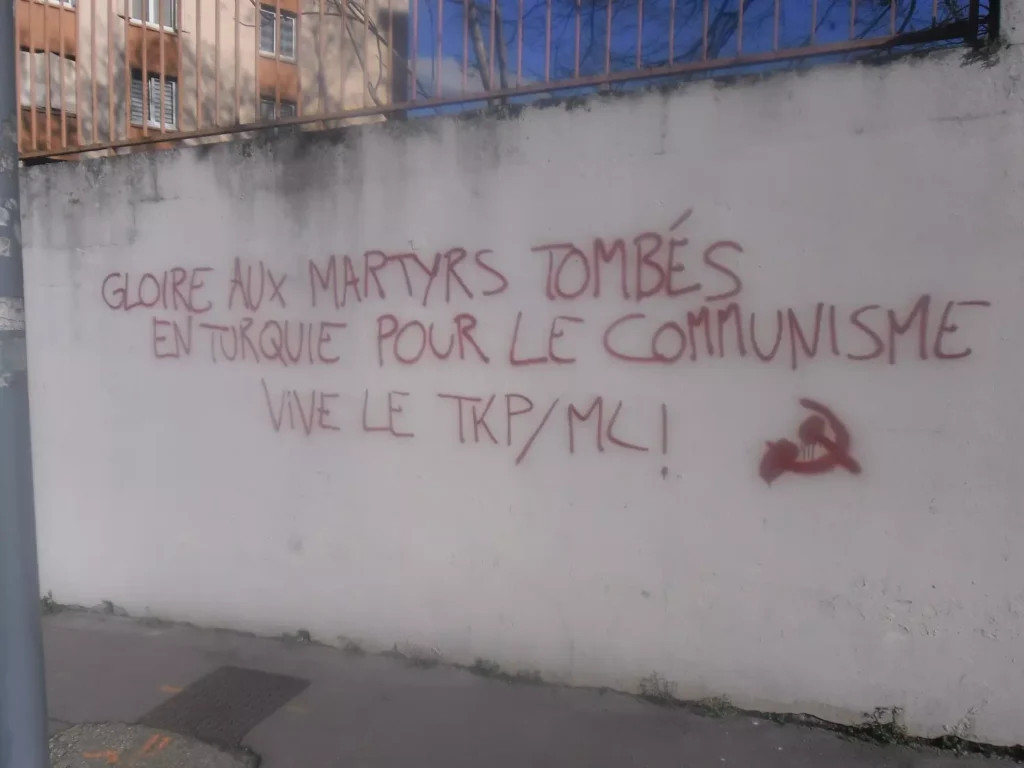 GLOIRE AUX MARTYRS TOMBÉS
EN TURQUIE POUR LE COMMUNISME
VIVE LE TKP/ML!